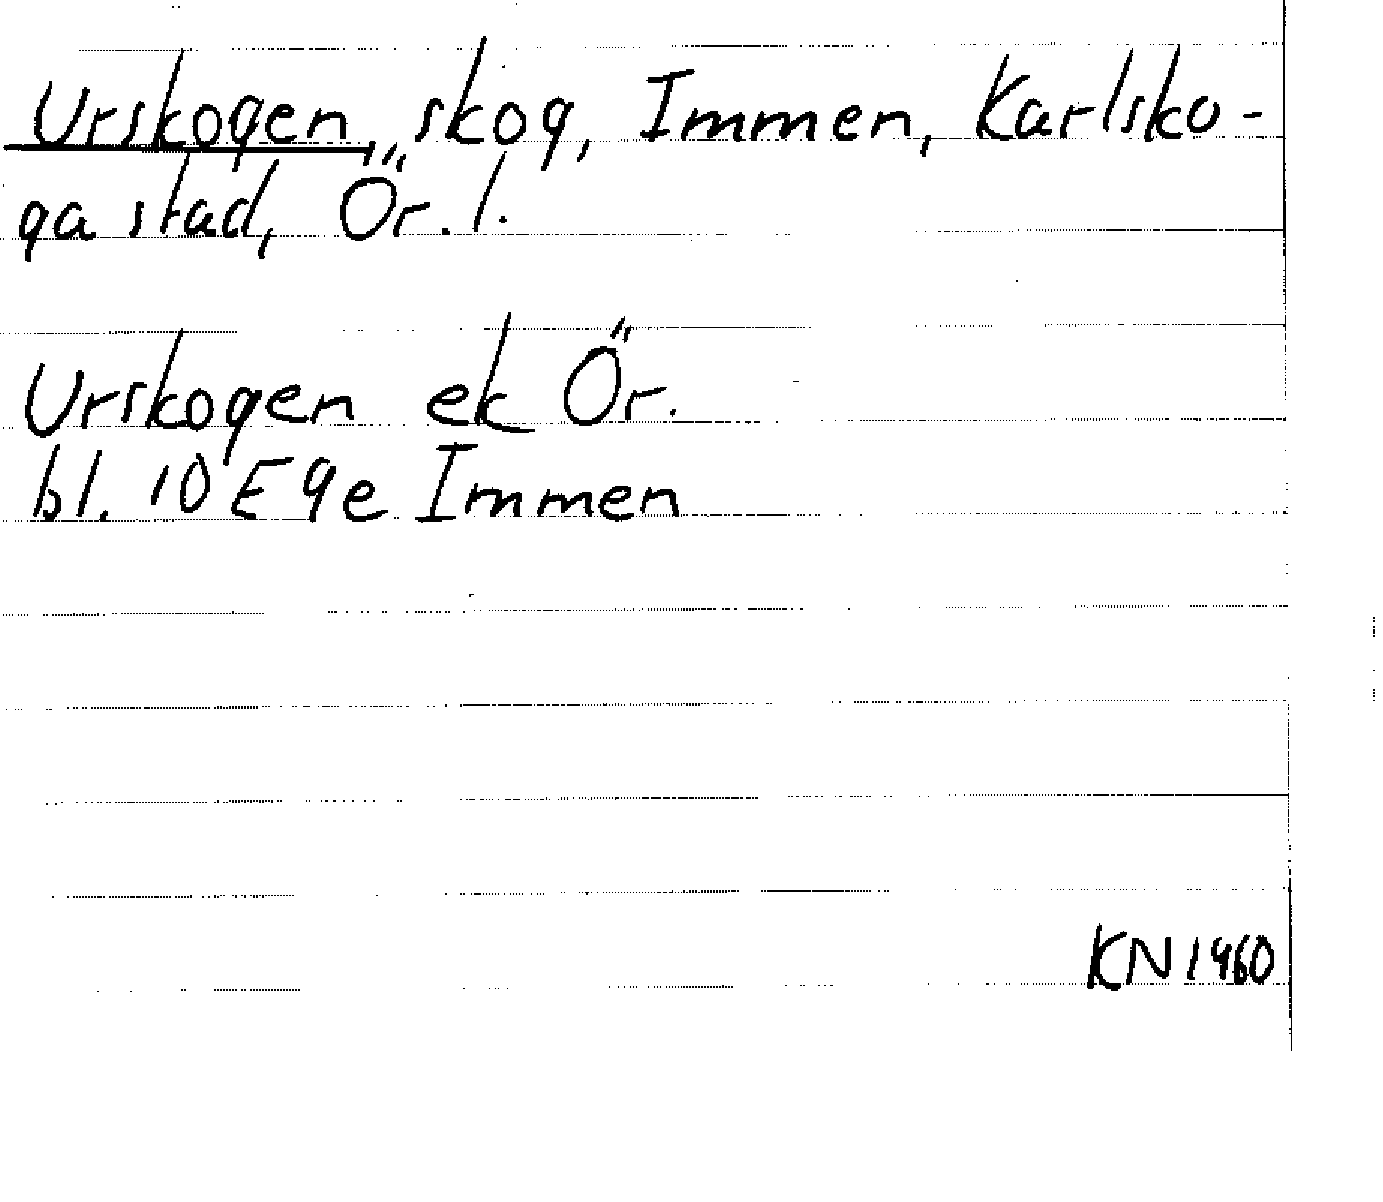 Urskogen, skog, Immen, Karlsko-
ga stad, Ör. l.
Urskogen ek Ör.
bl. 10 E 9e Immen
KN 1960